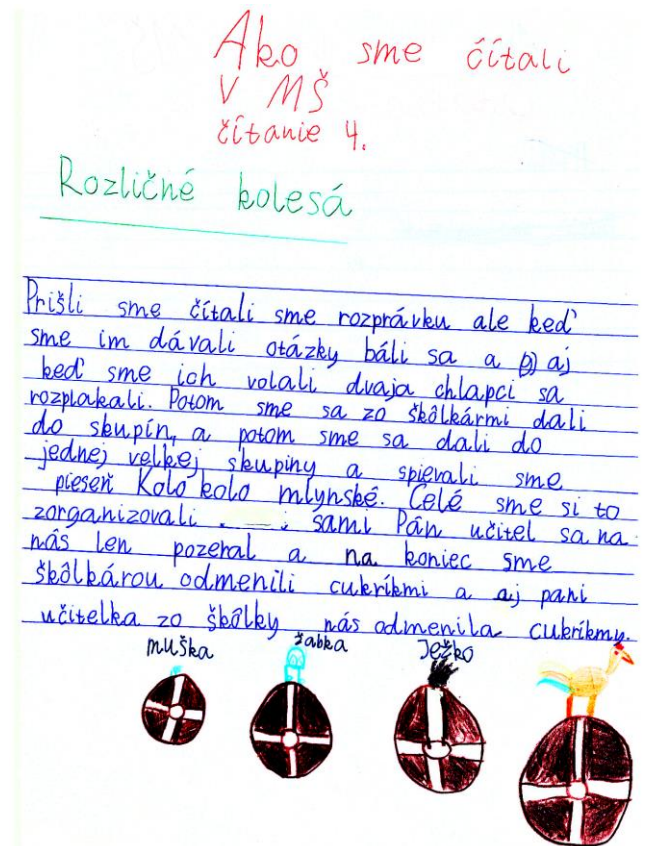 Ako sme čítali
V MŠ
čítanie 4.
Rozličné kolesá
Prišli sme čítali sme rozprávku ale keď
sme im dávali otázky báli sa a aj
keď sme ich volali dvaja chlapci sa
rozplakali. Potom sme sa zo škôlkármi dali
do skupín, a potom sme sa dali do
jednej velkej skupiny a spievali sme
pieseň Koló kolo mlynské. Celé sme si to
zorganizovali sami Pán učitel sa na
nás len pozeral a na koniec sme
škôlkárou odmenili cukríkmi a aj pani
učitelka zo škôlky nás odmenila cukríkmy.
muška žabka Ježko